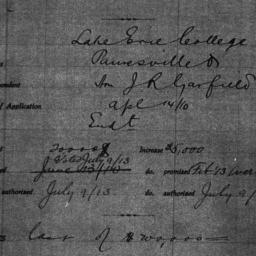 Lake Erie College
Painesville O
Hon J R Garfield
of Application apl 14/10
Endt
20000 Increase $5,000
July 9/13
June 13/10 do. promised Feb '13
authorized July 9/13 do. authorized July 9/
last of $200,000